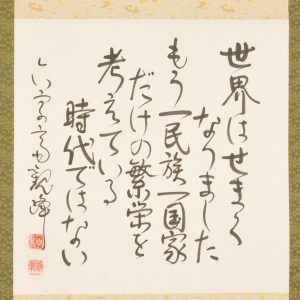 世界はせまく
なりました
もう一民族一国家
だけの繁栄を
考えている
時代ではない